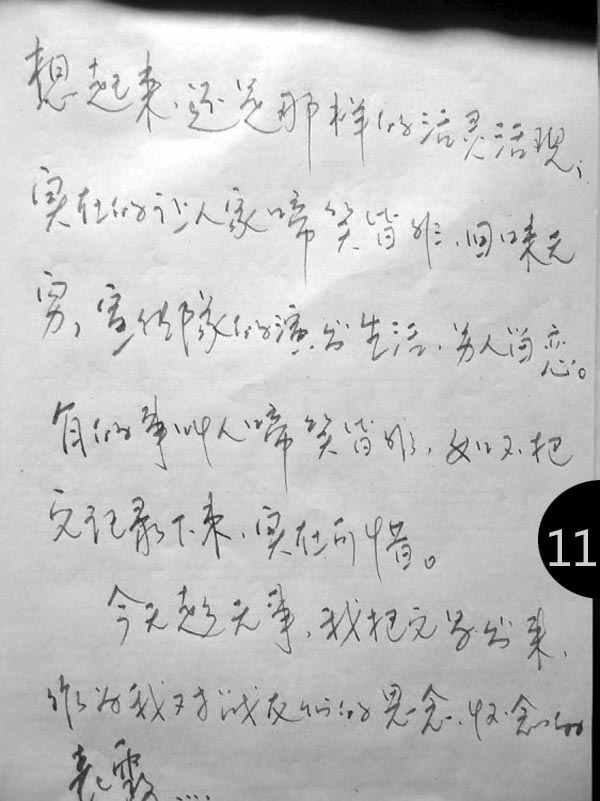 想起来，还是那样的活灵活现；
实在的让人家啼笑皆非，回味无
穷，宣传队的演出生活，为人留恋。
有的事叫人啼笑皆非，如不把
它记录下来，实在可惜。
今天趁无事，我把它写出来，
作为我对战友们的思念，怀念的
11